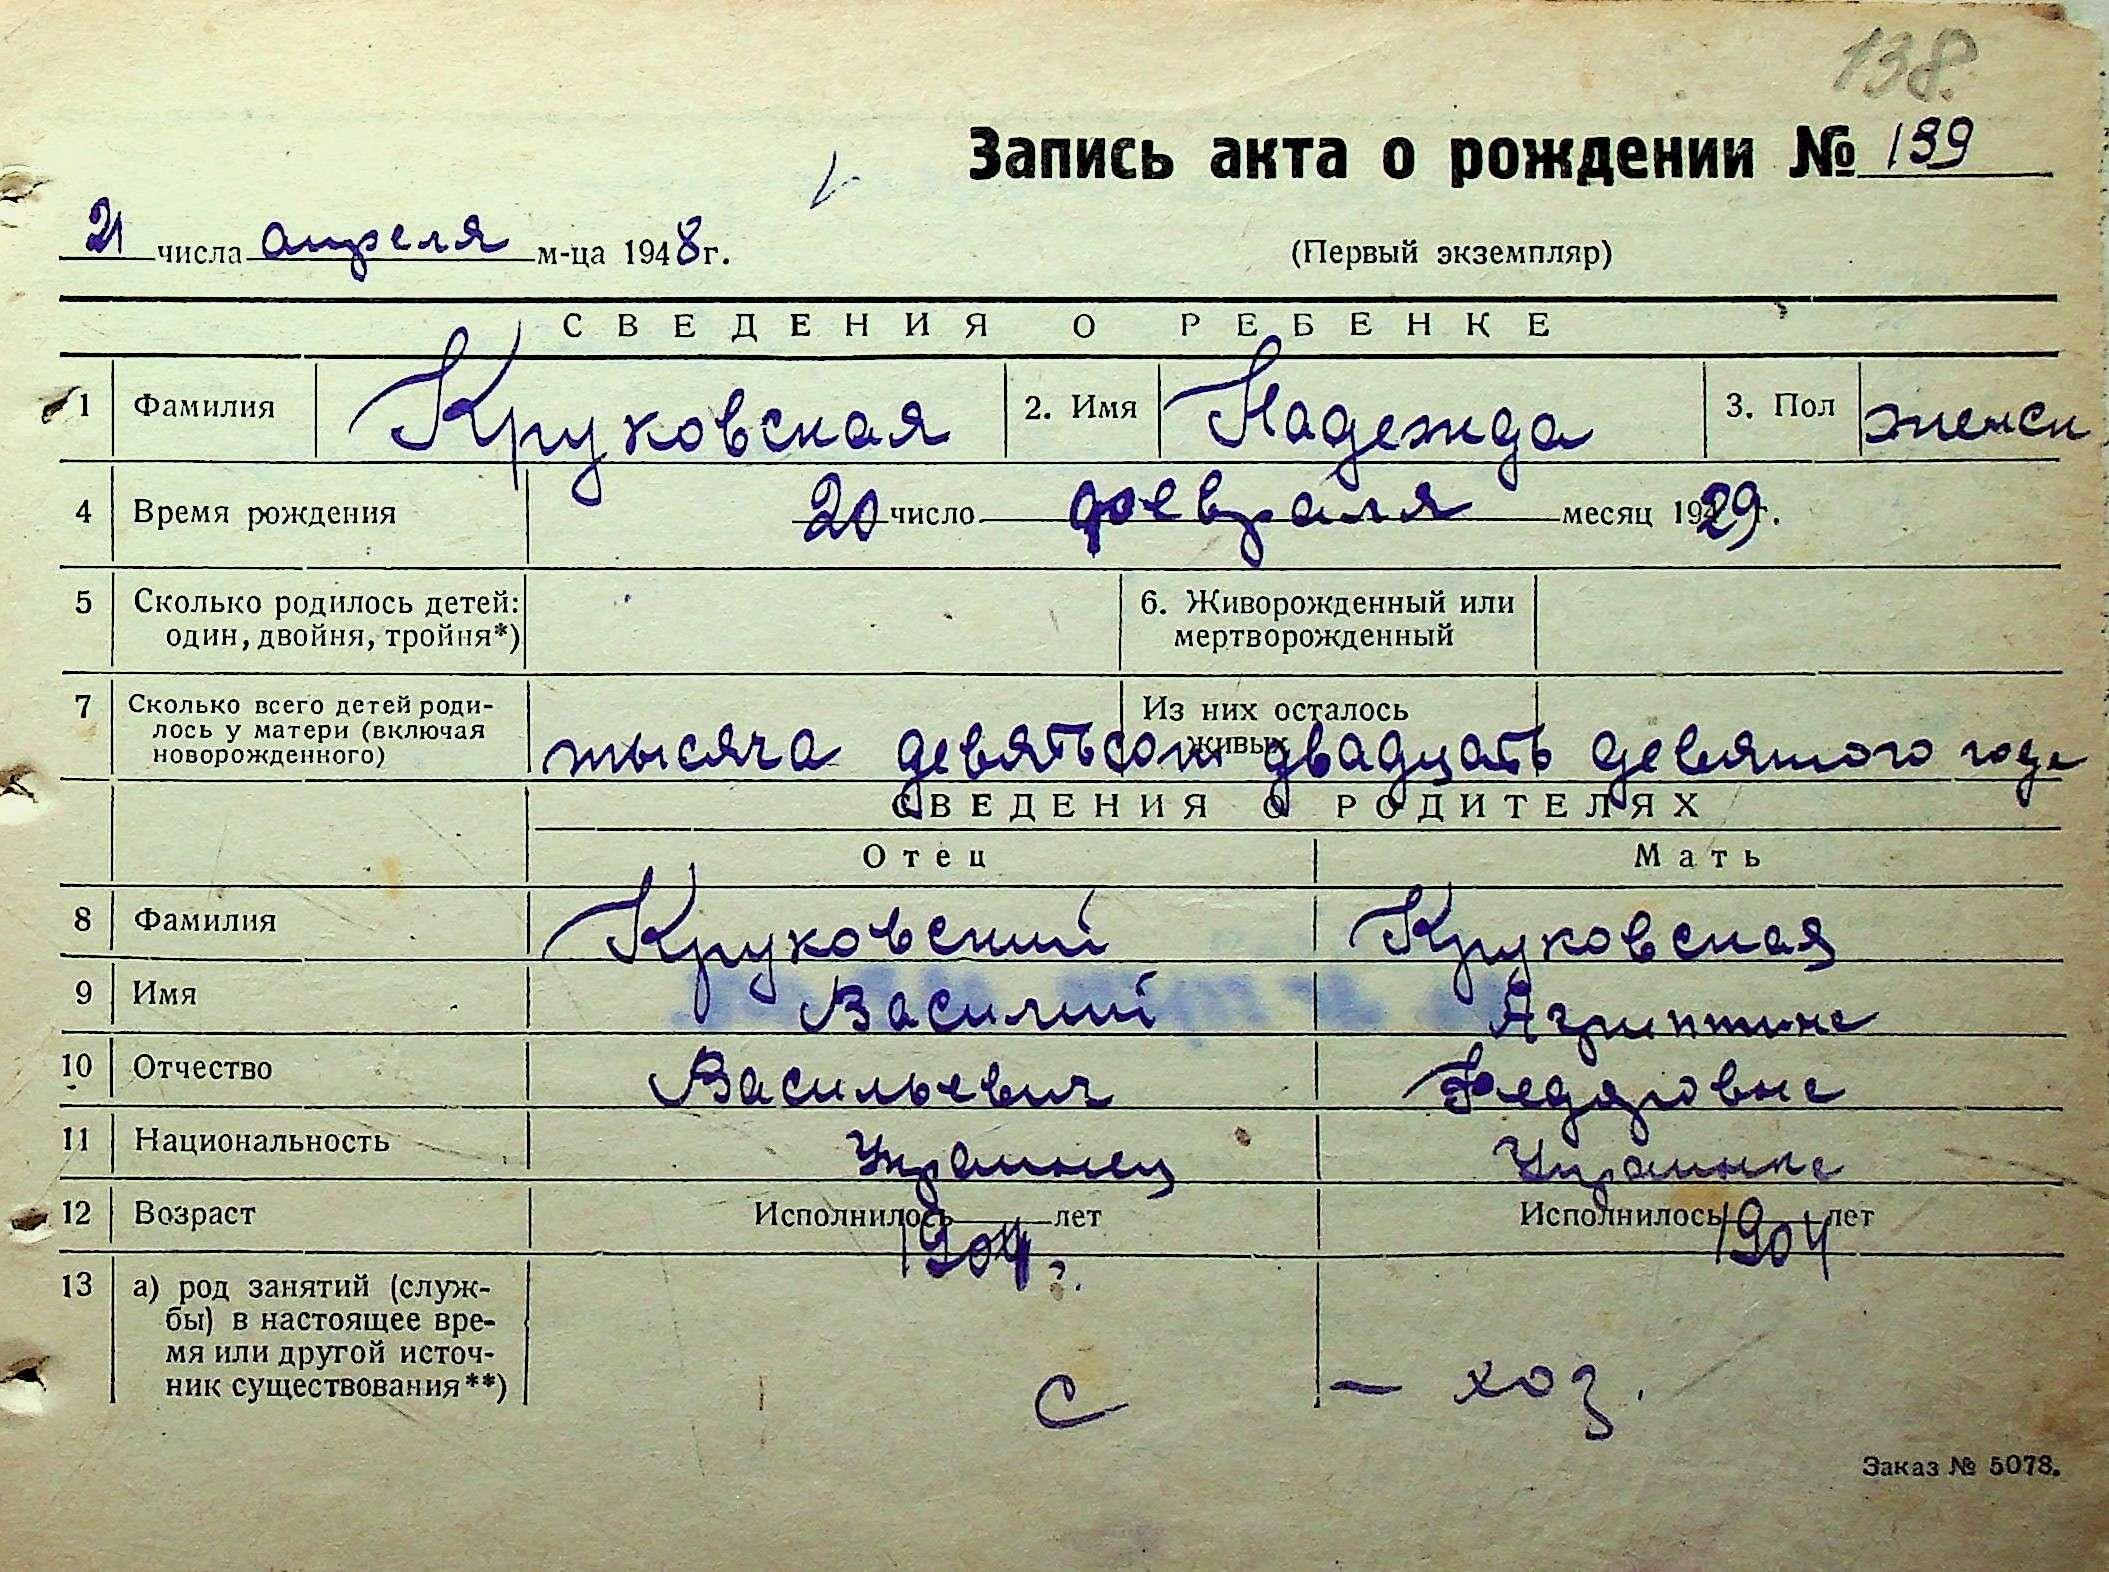 138.
Запись акта о рождении № 139
21 числа апреля м-ца 1948 г.
(Первый экземпляр)
СВЕДЕНИЯ О РЕБЕНКЕ
1 Фамилия Круковская 2. Имя Надежда 3. Пол женск
4 Время рождения 20 число февраля месяц 1929 г.
5 Сколько родилось детей: один, двойня, тройня*)
6. Живорожденный или мертворожденный
7 Сколько всего детей роди-
лось у матери (включая
новорожденного)
Из них осталось
живых
тысяча девятьсот двадцать девятого года
СВЕДЕНИЯ О РОДИТЕЛЯХ
Отец Мать
8 Фамилия Круковский Круковская
9 Имя Василий Агриппина
10 Отчество Васильевич
11 Национальность Украинец Украинка
12 Возраст Исполнилось лет Исполнилось лет
1904 г. 1904
13 а) род занятий (служ-
бы) в настоящее вре-
мя или другой источ-
ник существования**)
с – хоз.
Заказ № 5078.